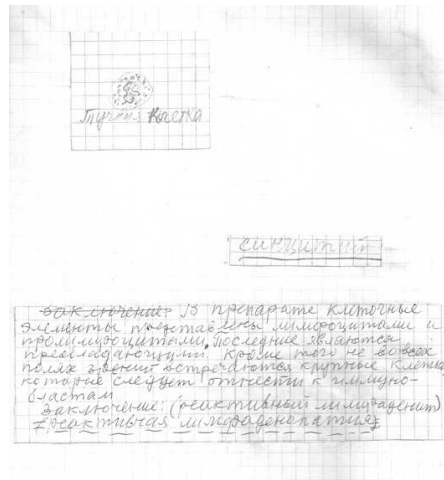 Тучная клетка
синцитий
Заключение: В препарате клеточные
элементы представлены лимфоцитами и
пролимфоцитами. Последние являются
преобладающими. Кроме того не во всех
полях зрения встречаются крупные клетки
которые следует отнести к иммуно-
бластам
Заключение: (реактивный лимфаденит)
(реактивная лимфаденопатия)